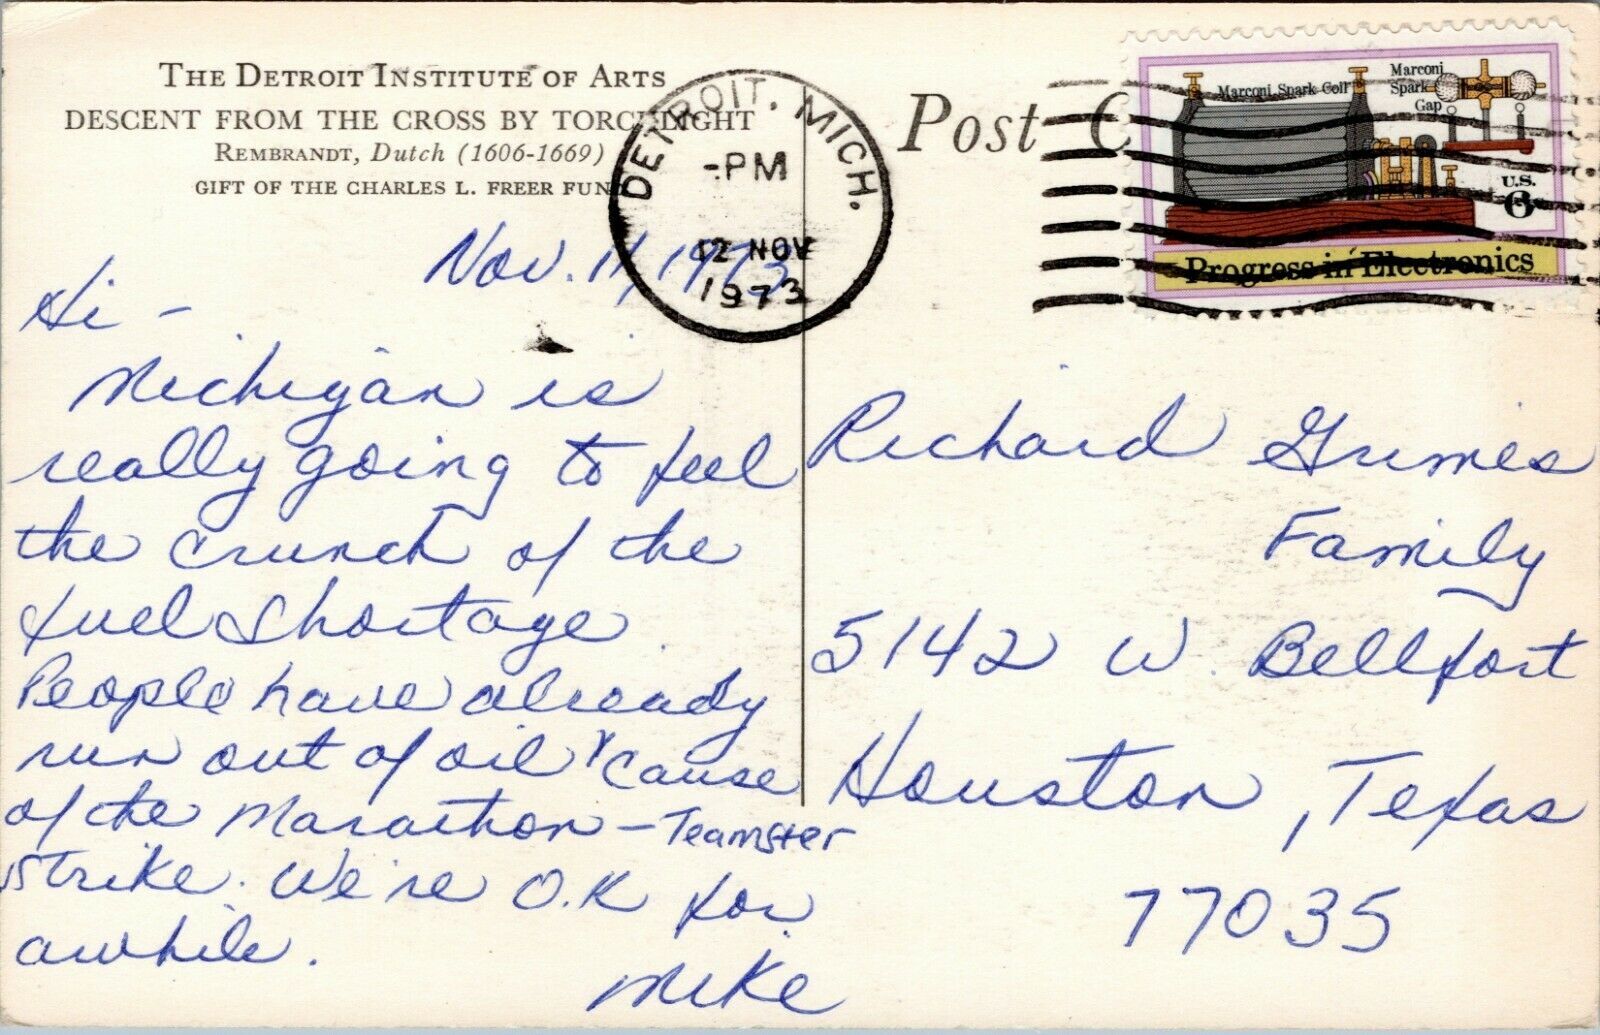 THE DETROIT INSTITUTE OF ARTS
DESCENT FROM THE CROSS BY TORCHLIGHT
REMBRANDT, Dutch (1606-1669)
GIFT OF THE CHARLES L. FREER FUND
Nov. 11, 1973
Hi –
Michigan is
really going to feel
the crunch of the
fuel shortage.
People have already
run out of oil 'cause
of the Marathon – Teamster
strike. We're O.K for
awhile.
Mike
DETROIT, MICH.
-PM
12 NOV
1973
Post C
Marconi Spark Coil
Marconi
Spark
Gap
U.S.
6¢
Progress in Electronics
Richard Grimes
Family
5142 W. Bellfort
Houston, Texas
77035